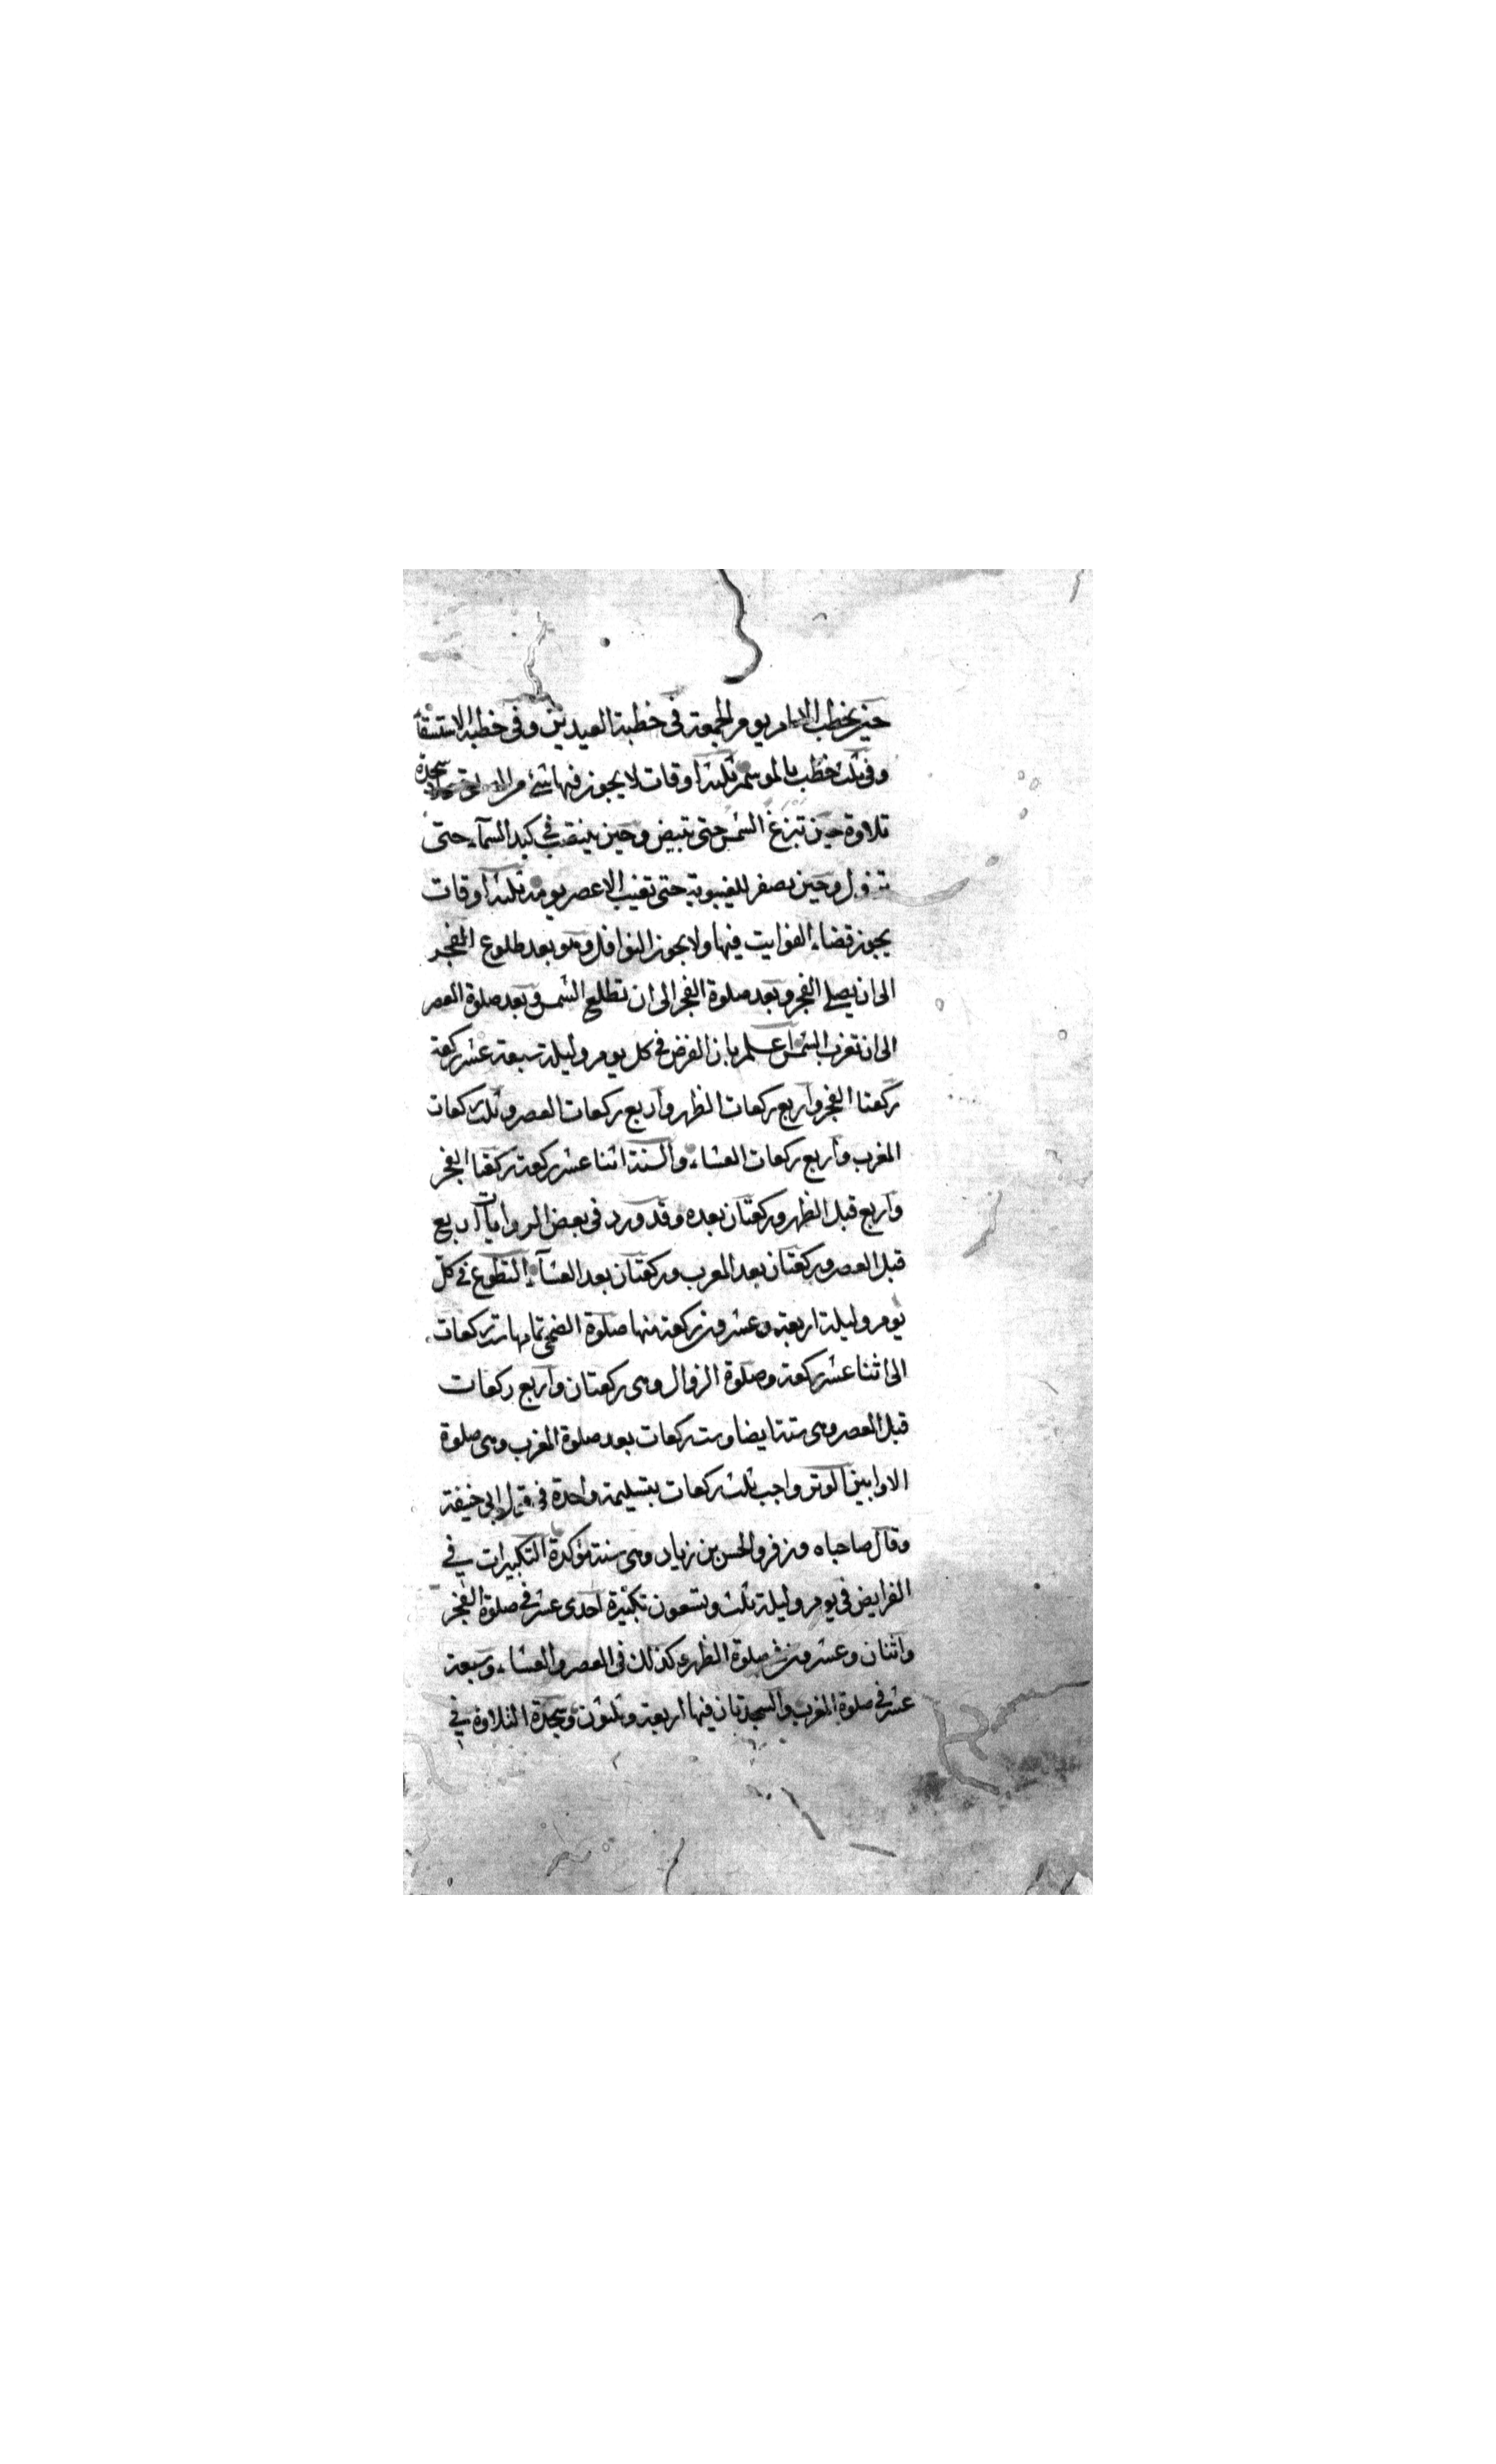 حين يخطب الامام يوم الجمعة في خطبة العيدين وفي خطبة الاستسقآ
وفي ثلث خطب بالموسم ثلثة اوقات لا يجوز فيها شئ من الصلوة سجدة
تلاوة حين تبزغ الشمس حتى تبيض وحين ينتصب في كبد السمآء حتى
تزول وحين يصفر للغيبوبة حتى تغيب الا عصر يومه ثلثة اوقات
يجوز قضاء الفوايت فيها ولا يجوز النوافل وهو بعد طلوع الفجر
الى ان يصلى الفجر وبعد صلوة الفجر الى ان تطلع الشمس وبعد صلوة العصر
الى ان تغرب الشمس اعلم بان الفرض في كل يوم وليلة سبعة عشر ركعة
ركعتا الفجر واربع ركعات الظهر واربع ركعات العصر وثلث ركعات
المغرب واربع ركعات العشاء والسنة اثنا عشر ركعة ركعتا الفجر
واربع قبل الظهر وركعتان بعده وقد ورد في بعض الروايات اربع
قبل العصر وركعتان بعد المغرب وركعتان بعد العشآء التطوع في كل
يوم وليلة اربعة وعشرون ركعة منها صلوة الضحى تمامها ركعات
الى اثنا عشر ركعة وصلوة الزوال وهى ركعتان واربع ركعات
قبل العصر وهى سنة ايضا وست ركعات بعد صلوة المغرب وهى صلوة
الاوابين الوتر واجب ثلث ركعات بتسليمة واحدة في قول ابي حنيفة
وقال صاحباه وزفر والحسن بن زياد وهى سنة مؤكدة التكبيرات في
الفرايض في يوم وليلة ثلث وتسعون تكبيرة احدى عشر في صلوة الفجر
واثنان وعشرون في صلوة الظهر وكذلك في العصر والعشاء وسبعة
عشر في صلوة المغرب والسجدتان فيها اربعة وثلثون وسجدة التلاوة في